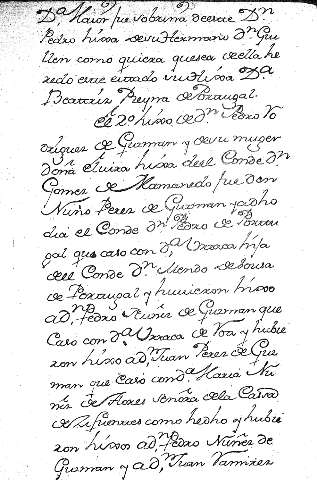 Dª Maior fue sobrina de este Dn
Pedro hixa de su Hermano Dn Gui
llen como quiera que sea de ella he
redo este estado su Hixa Dª
Beatriz Reyna de Portugal.
El 2º hixo de dn Pedro Ro
driguez de Guzman y de su muger
doña Elvira hixa del Conde dn
Gomez de Mamanedo fue don
Nuño Perez de Guzman y a dho
dia el Conde dn Pedro de Portu
gal que caso con dª Urraca hija
del Conde dn Mendo de Sousa
de Portugal y huvieron hixo
a dn Pedro Nuñez de Guzman que
Caso con dª Urraca de y hubie
ron hixo a dn Juan Perez de Guz
man que Caso con dª Maria Nu
ñez de Flores señora de la Casa
de Sifuentes como hecho y hubie
ron hixos a dn Pedro Nuñez de
Guzman y a dn Juan Ramirez